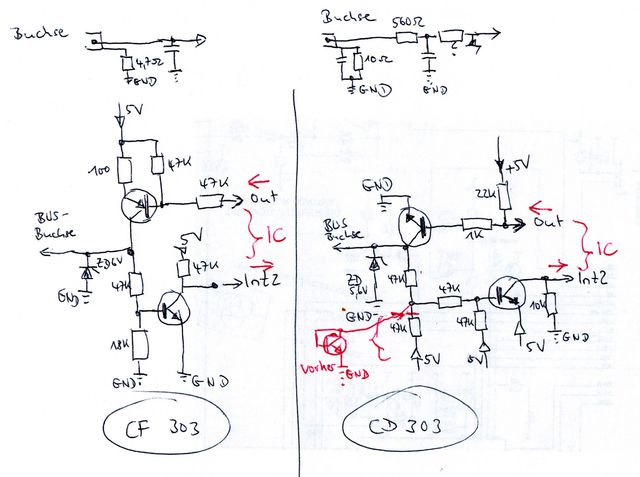 Buchse
4,7Ω
GND
5V
100
47K
47K
Out
BUS-
Buchse
IC
5V
ZD6V
47K
47K
Int2
GND
18K
GND
GND
CF 303
Buchse
560Ω
?
10Ω
GND
GND
+5V
GND
22K
Out
BUS
Buchse
1K
IC
ZD
5,6V
47K
47K
Int2
GND
47K
47K
10K
GND
5V
5V
5V
Vorher
GND
CD 303